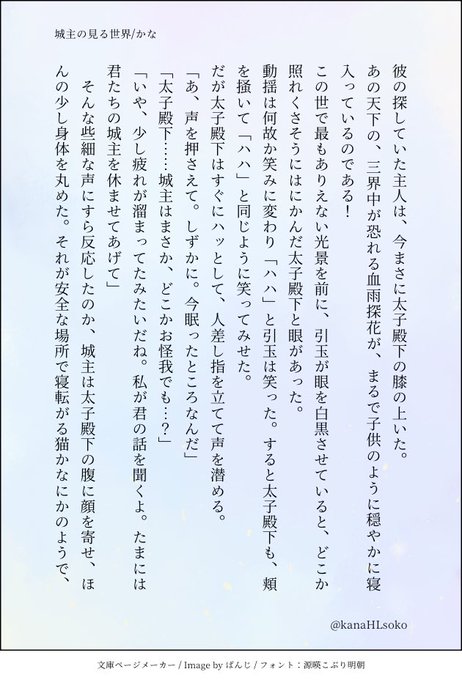 城主の見る世界/かな
彼の探していた主人は、今まさに太子殿下の膝の上いた。
あの天下の、三界中が恐れる血雨探花が、まるで子供のように穏やかに寝
入っているのである！
この世で最もありえない光景を前に、引玉が眼を白黒させていると、どこか
照れくさそうにはにかんだ太子殿下と眼があった。
動揺は何故か笑みに変わり「ハハ」と引玉は笑った。すると太子殿下も、頬
を掻いて「ハハ」と同じように笑ってみせた。
だが太子殿下はすぐにハッとして、人差し指を立てて声を潜める。
「あ、声を押さえて。しずかに。今眠ったところなんだ」
「太子殿下……城主はまさか、どこかお怪我でも…？」
「いや、少し疲れが溜まってたみたいだね。私が君の話を聞くよ。たまには
君たちの城主を休ませてあげて」
そんな些細な声にすら反応したのか、城主は太子殿下の腹に顔を寄せ、ほ
んの少し身体を丸めた。それが安全な場所で寝転がる猫かなにかのようで、
@kanaHLsoko
文庫ページメーカー / Image by ぱんじ / フォント：源暎こぶり明朝